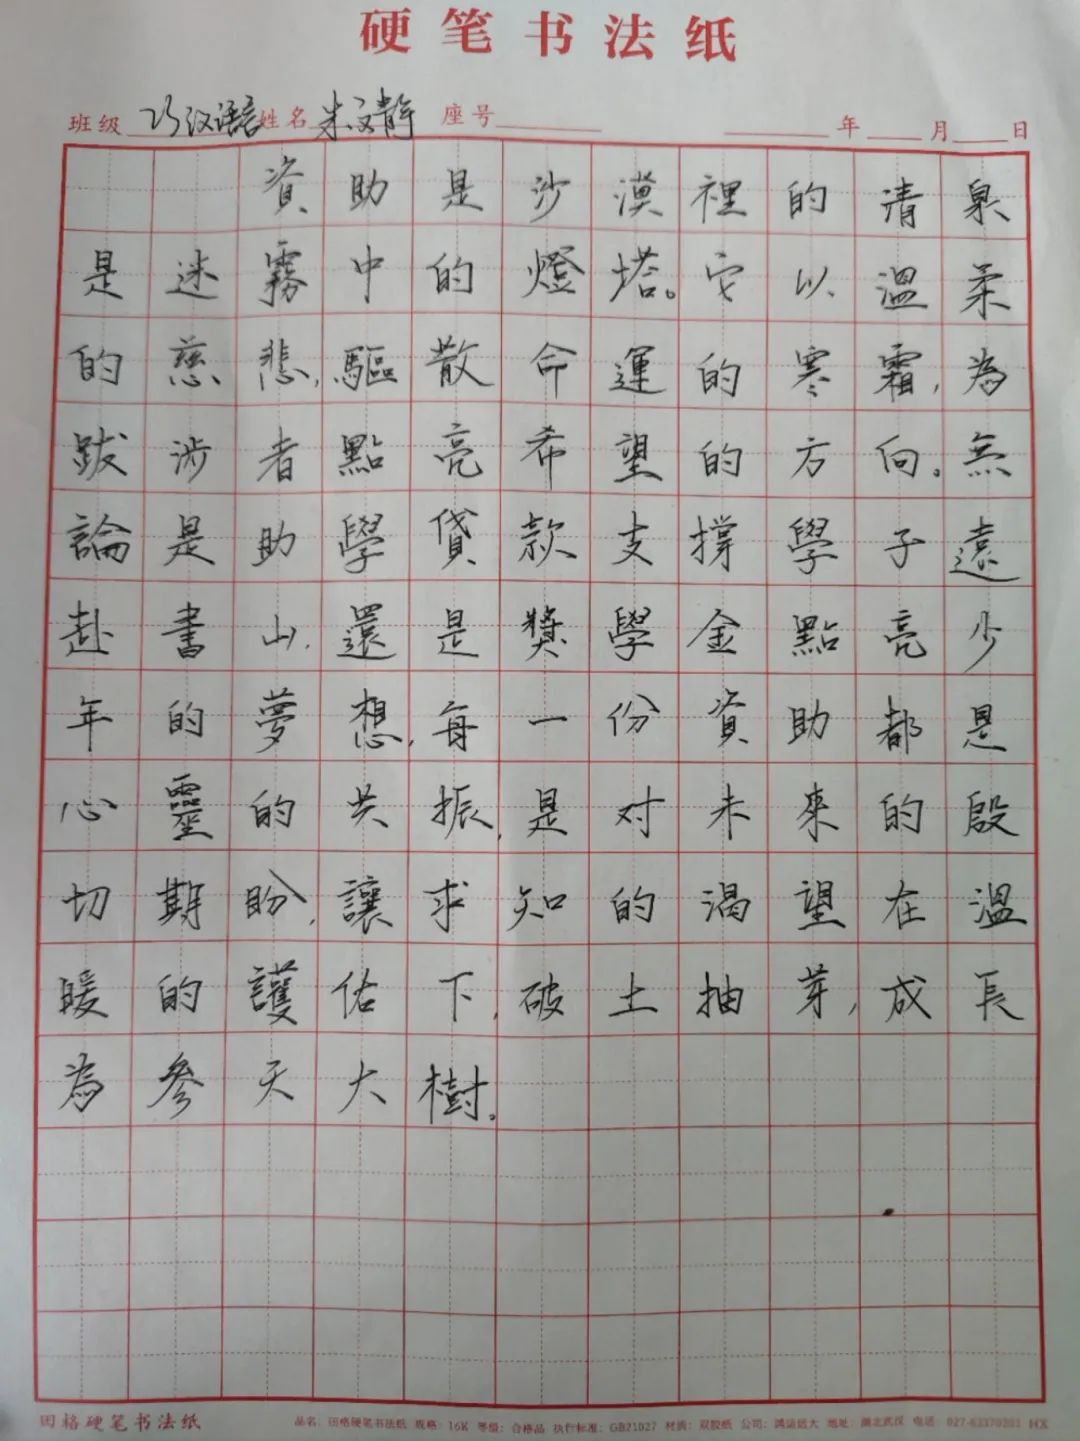 硬笔书法纸
班级 巧汉语言 姓名 朱文静 座号 年 月 日
資助是沙漠裡的清泉
是迷霧中的燈塔。它以溫柔
的慈悲,驅散命運的寒霜,為
跋涉者點亮希望的方向。無
論是助學貸款支撐學子遠
赴書山,還是獎學金點亮少
年的夢想,每一份資助都是
心靈的共振,是对未來的殷
切期盼,讓求知的渴望在溫
暖的護佑下,破土抽芽,成長
為參天大樹。
田格硬笔书法纸 品名:田格硬笔书法纸 规格:16K 等级:合格品 执行标准:GB21027 材质:双胶纸 公司:鸿运远大 地址:湖北武汉 电话: